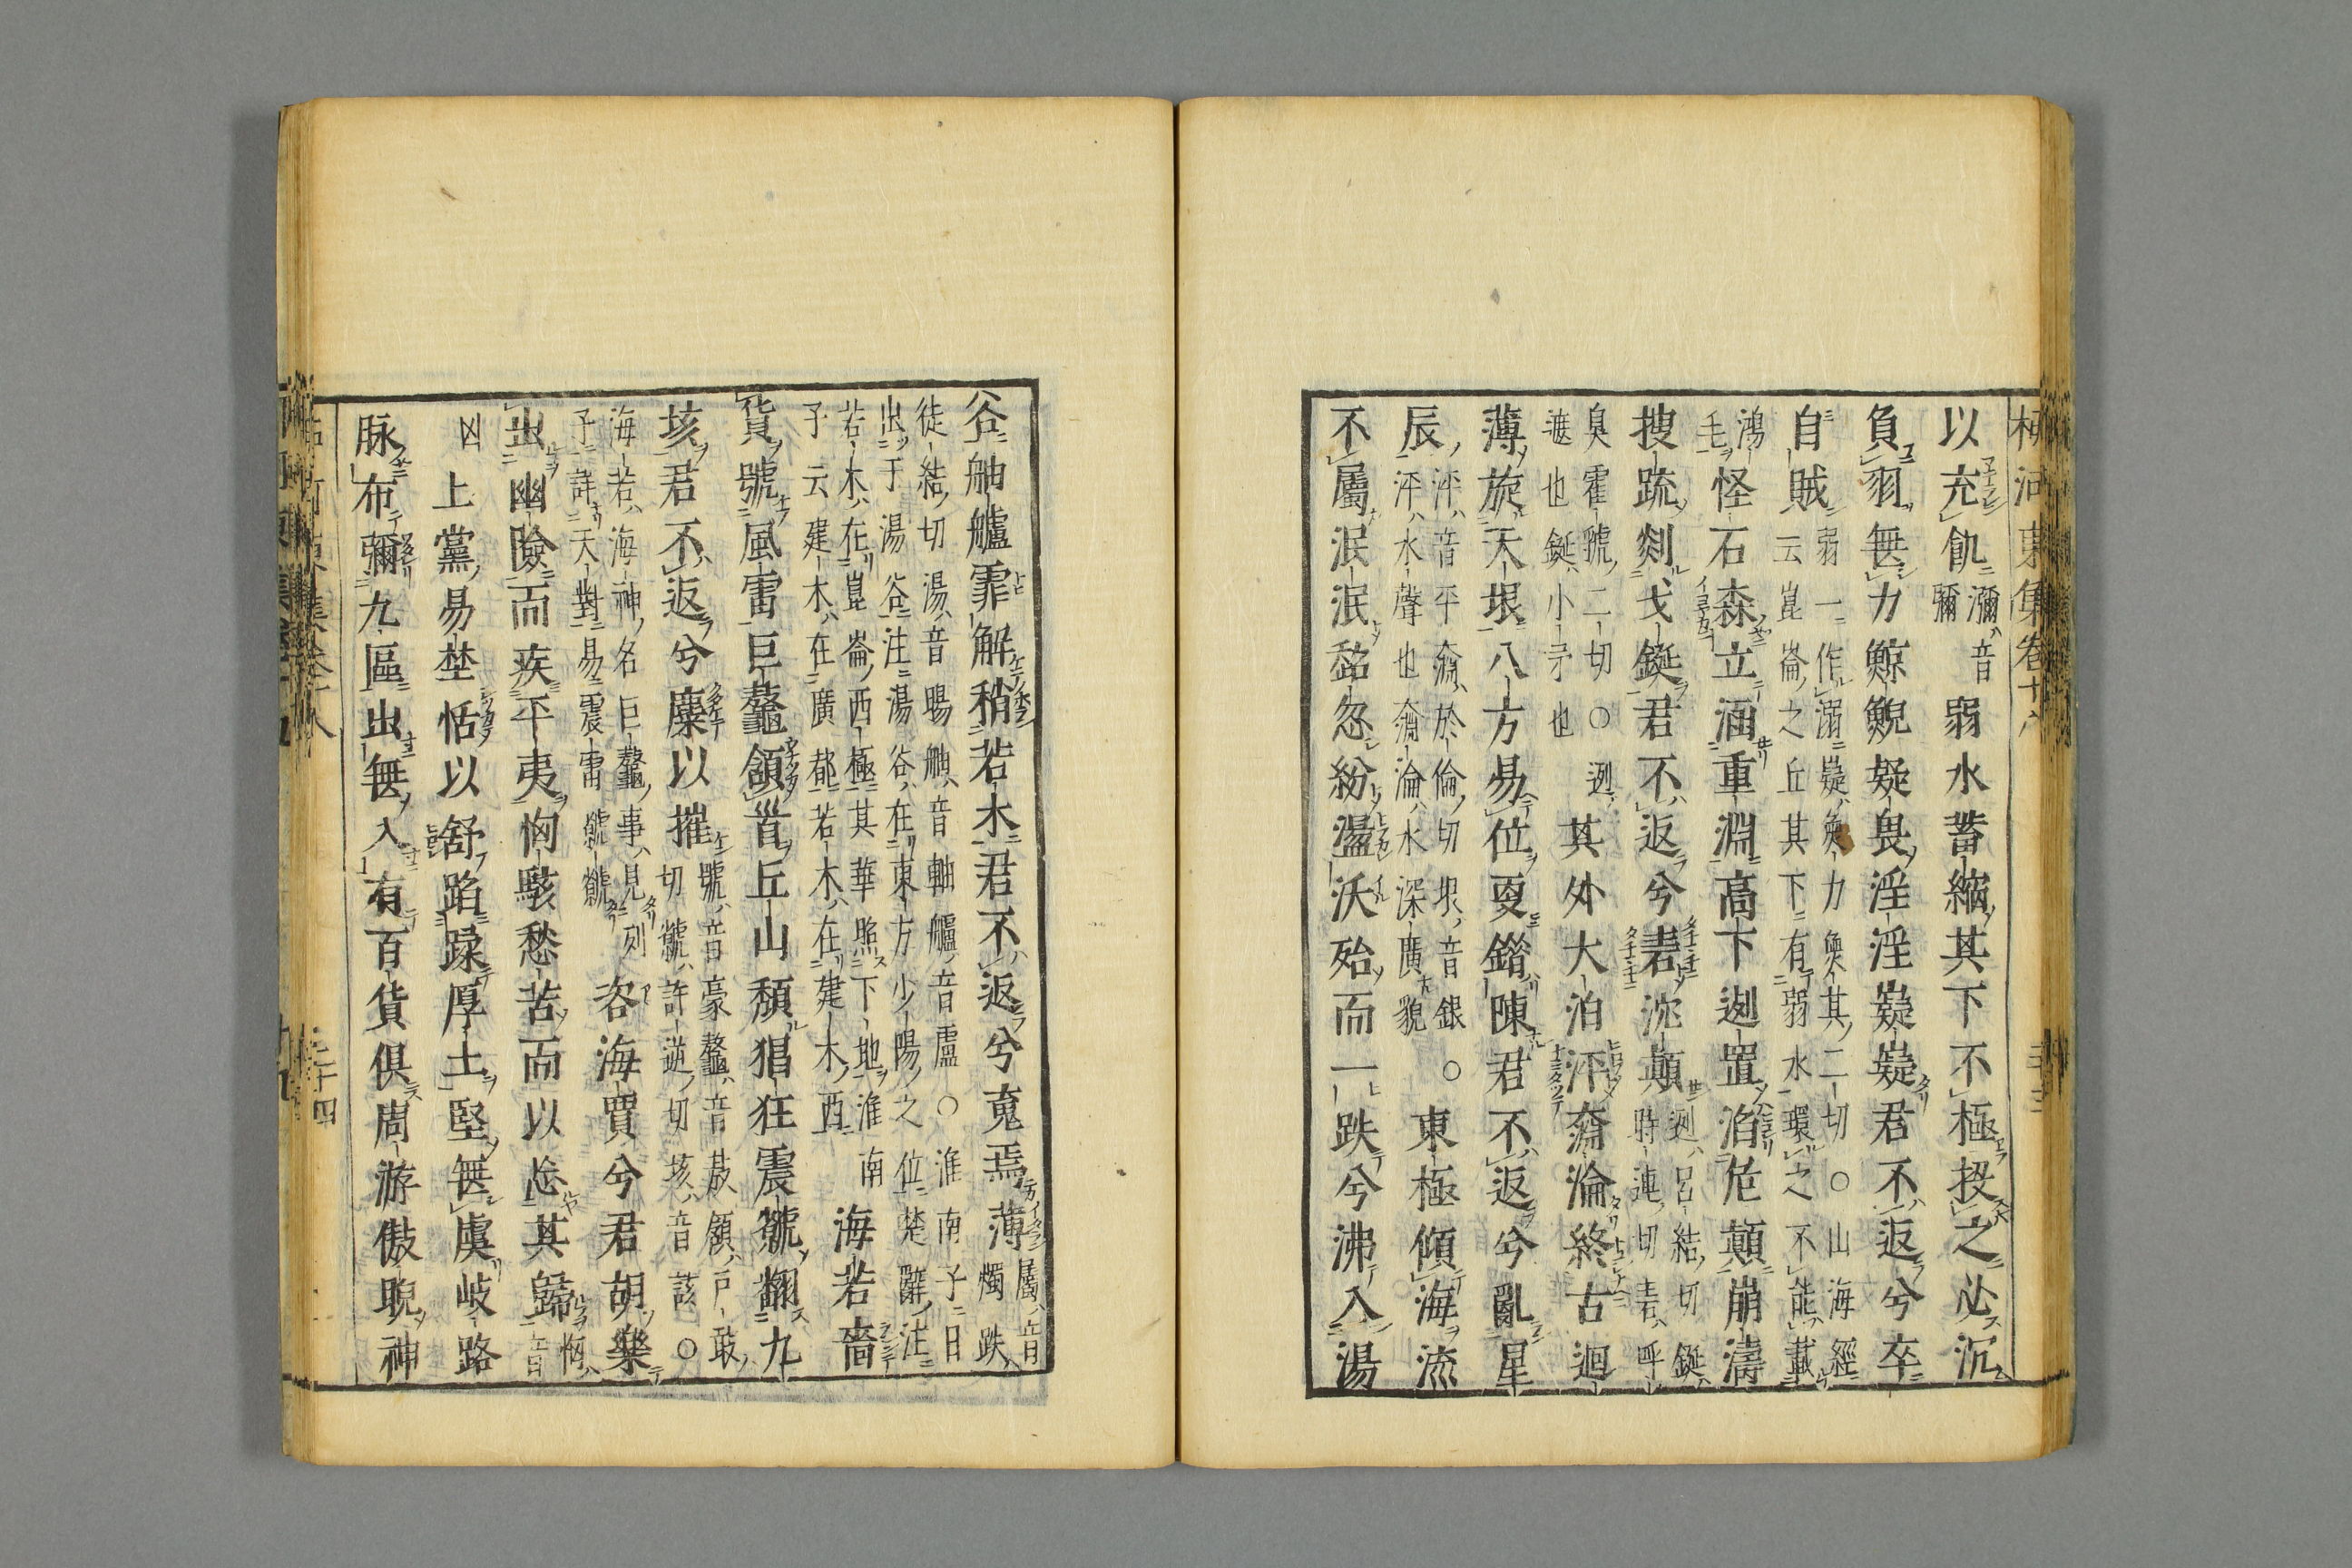 柳河東集卷十八
以充飢瀰音彌弱水蓄縮其下不極投之必沉
負羽無力鯨鯢疑畏淫淫嶷嶷君不返兮卒
自賊弱一作溺嶷奐力奐其二切○山海經云崑崙之丘其下有弱水環之不能載鴻毛
怪石森立涵重淵高下迾置滔危顛崩濤
搜疏剡戈鋋君不返兮砉沈顛迾呂結切鋋時連切砉呼臭霍虢二切○迾遮也鋋小矛也
其外大泊泙奫淪終古迴
薄旋天垠八方易位更錯陳君不返兮亂星
辰泙音平奫於倫切垠音銀○泙水聲也奫淪水深廣貌東極傾海流
不屬泯泯超忽紛盪沃殆而一跌兮沸入湯
谷舳艫霏解梢若木君不返兮䰟焉薄屬音燭跌徒結切湯音暘舳音軸艫音盧○淮南子日出于湯谷注湯谷在東方少陽之位楚辭注若木在崑崙西極其華照下地淮南子云建木在廣都若木在建木西
海若嗇
貨號風雷巨鼇頷首丘山頹猖狂震虩翻九
垓君不返兮麋以摧號音豪鼇音敖頷戶敢切虩許逆切垓音該○海若海神名巨鼇事見列子註天對易震雷虩虩
咨海賈兮君胡樂
出幽險而疾平夷恟駭愁苦而以忘其歸恟音凶
上黨易埜恬以舒蹈蹂厚土堅無虞岐路
脉布彌九區出無入有百貨俱周游傲睨神
二十四